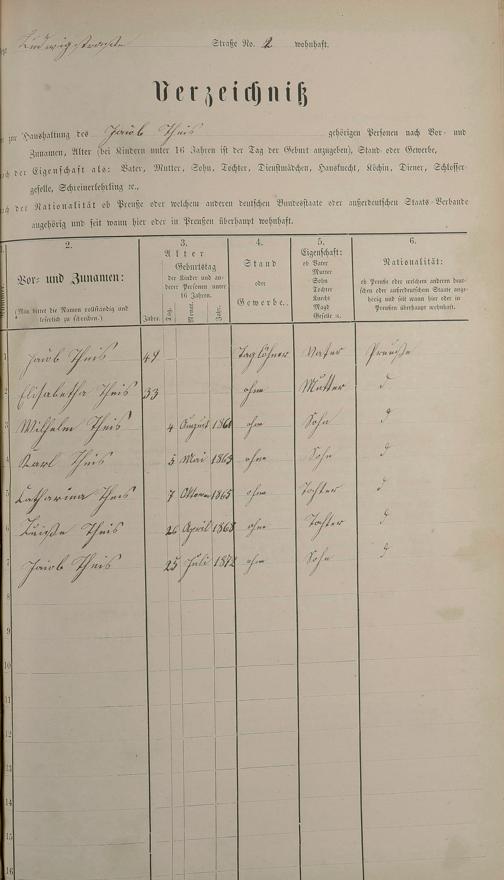 Ludwigstraße Straße No. 2 wohnhaft.
Verzeichniß
zur Haushaltung des Jacob Theis gehörigen Personen nach Vor- und
Zunamen, Alter (bei Kindern unter 16 Jahren ist der Tag der Geburt anzugeben), Stand oder Gewerbe,
nach der Eigenschaft als: Vater, Mutter, Sohn, Tochter, Dienstmädchen, Hausknecht, Köchin, Diener, Schlosser-
geselle, Schreinerlehrling ꝛc.,
nach der Nationalität ob Preuße oder welchem anderen deutschen Bundesstaate oder außerdeutschen Staats-Verbande
angehörig und seit wann hier oder in Preußen überhaupt wohnhaft.
2. 3. 4. 5. 6.
Vor- und Zunamen:
(Man bittet die Namen vollständig und
leserlich zu schreiben.)
Alter
Geburtstag
der Kinder und an-
derer Personen unter
16 Jahren.
Jahre. Tag. Monat. Jahr.
Stand
oder
Gewerbe.
Eigenschaft:
ob Vater
Mutter
Sohn
Tochter
Knecht
Magd
Geselle ꝛc.
Nationalität:
ob Preuße oder welchem anderen deut-
schen oder außerdeutschen Staate ange-
hörig und seit wann hier oder in
Preußen überhaupt wohnhaft.
1 Jacob Theis 49 Taglöhner Vater Preuße
2 Elisabetha Theis 33 ohne Mutter d
3 Wilhelm Theis 4 August 1861 ohne Sohn d
4 Karl Theis 5 Mai 1863 ohne Sohn d
5 Catharina Theis 7 1865 ohne Tochter d
6 Luiße Theis 26 April 1868 ohne Tochter d
7 Jacob Theis 25 Juli 1872 ohne Sohn d
8
9
10
11
12
13
14
15
16